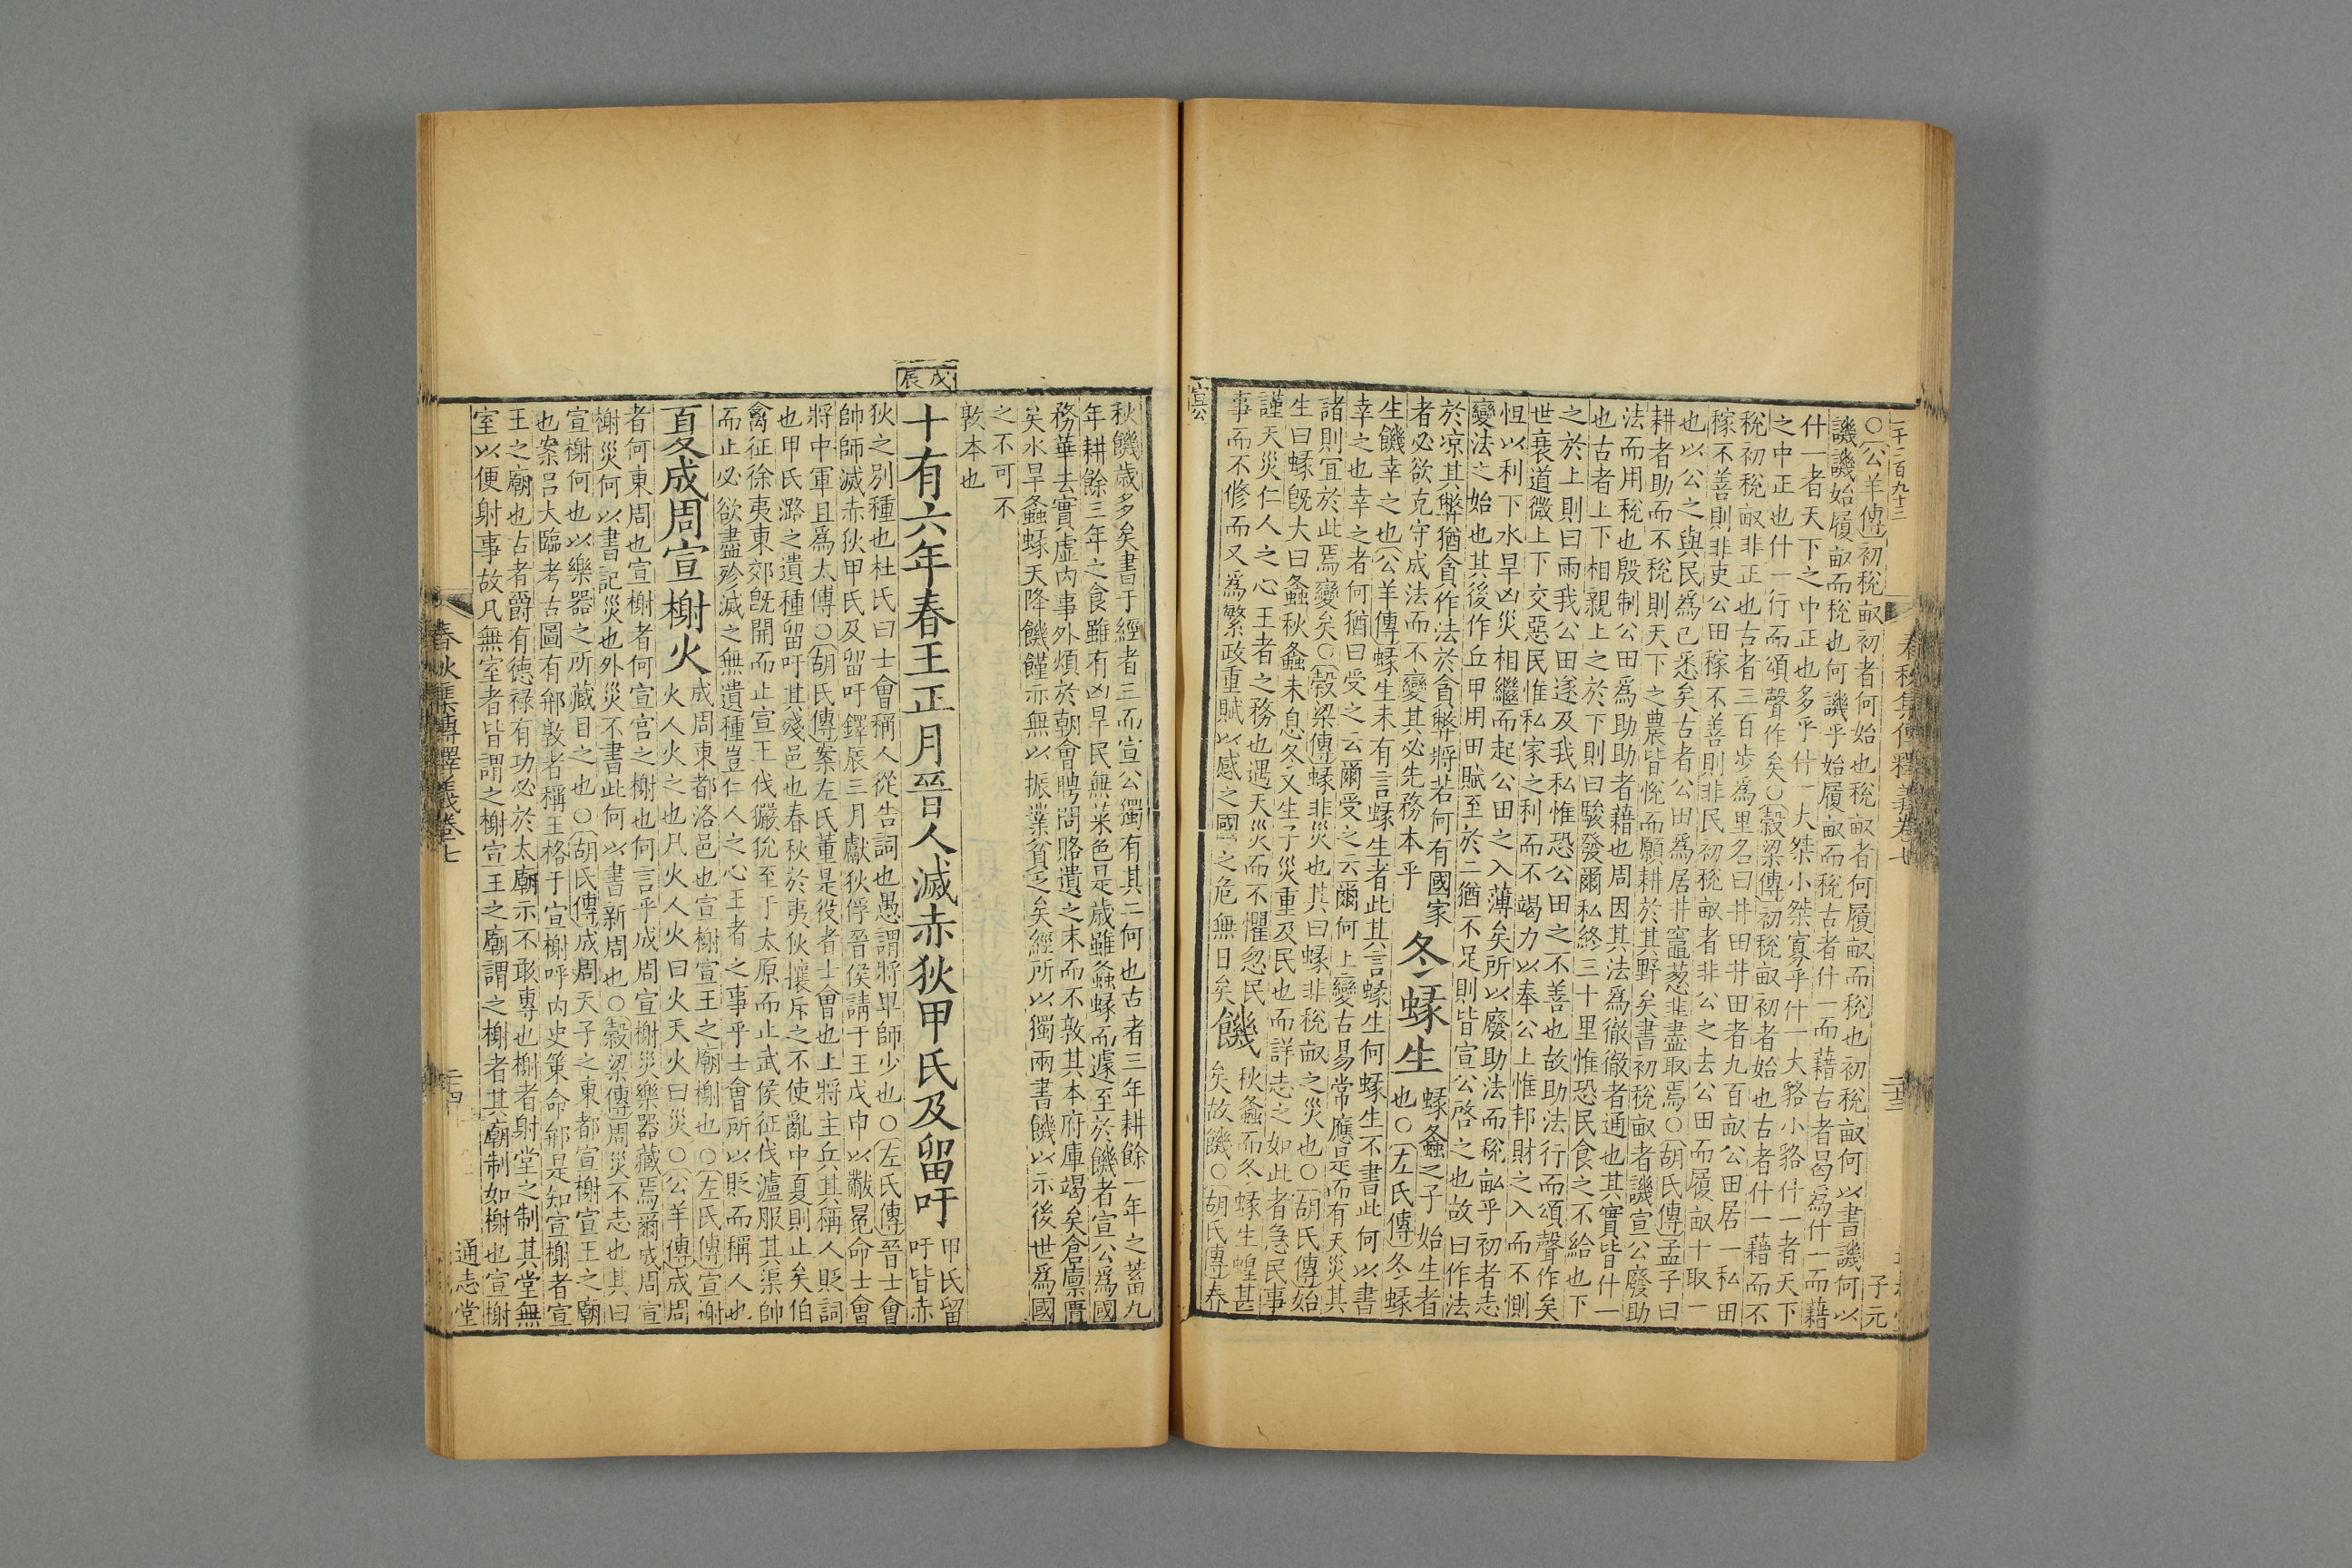 一千二百九十三
春秋集傳釋義卷七
二十三
子元
○公羊傳初稅畝初者何始也稅畝者何履畝而稅也初稅畝何以書譏何以
譏譏始履畝而稅也何譏乎始履畝而稅古者什一而藉古者曷爲什一而藉
什一者天下之中正也多乎什一大桀小桀寡乎什一大貉小貉什一者天下
之中正也什一行而頌聲作矣○穀梁傳初稅畝初者始也古者什一藉而不
稅初稅畝非正也古者三百步爲里名曰井田井田者九百畝公田居一私田
稼不善則非吏公田稼不善則非民初稅畝者非公之去公田而履畝十取一
也以公之與民爲已悉矣古者公田爲居井竈葱韭盡取焉○胡氏傳孟子曰
耕者助而不稅則天下之農皆悅而願耕於其野矣書初稅畝者譏宣公廢助
法而用稅也殷制公田爲助助者藉也周因其法爲徹徹者通也其實皆什一
也古者上下相親上之於下則曰駿發爾私終三十里惟恐民食之不給也下
之於上則曰雨我公田遂及我私惟恐公田之不善也故助法行而頌聲作矣
世衰道微上下交惡民惟私家之利而不竭力以奉公上惟邦財之入而不惻
怛以利下水旱凶災相繼而起公田之入薄矣所以廢助法而稅畝乎初者志
變法之始也其後作丘甲用田賦至於二猶不足則皆宣公啓之也故曰作法
於凉其弊猶貪作法於貪弊將若何有國家
者必欲克守成法而不變其必先務本乎
冬蝝生
蝝螽之子始生者
也○左氏傳冬蝝
生饑幸之也公羊傳蝝生未有言蝝生者此其言蝝生何蝝生不書此何以書
幸之也幸之者何猶曰受之云爾受之云爾何上變古易常應是而有天災其
諸則宜於此焉變矣○穀梁傳蝝非災也其曰蝝非稅畝之災也○胡氏傳始
生曰蝝旣大曰螽秋螽未息冬又生子災重及民也而詳志之如此者急民事
謹天災仁人之心王者之務也遇天災而不懼忽民
事而不修而又爲繁政重賦以感之國之危無日矣
饑
秋螽而冬蝝生蝗甚
矣故饑○胡氏傳春
秋饑歲多矣書于經者三而宣公獨有其二何也古者三年耕餘一年之蓄九
年耕餘三年之食雖有凶旱民無菜色是歲雖螽蝝而遽至於饑者宣公爲國
務華去實虛内事外煩於朝會聘問賂遺之末而不敦其本府庫竭矣倉廩匱
矣水旱螽蝝天降饑饉亦無以振業貧乏矣經所以獨兩書饑以示後世爲國
之不可不
敦本也
戊辰
十有六年春王正月晉人滅赤狄甲氏及留吁
甲氏留
吁皆赤
狄之別種也杜氏曰士會稱人從告詞也愚謂將卑師少也○左氏傳晉士會
帥師滅赤狄甲氏及留吁鐸辰三月獻狄俘晉侯請于王戊申以黻冕命士會
將中軍且爲太傅○胡氏傳案左氏董是役者士會也上將主兵其稱人貶詞
也甲氏潞之遺種留吁其殘邑也春秋於夷狄攘斥之不使亂中夏則止矣伯
禽征徐夷東郊旣開而止宣王伐玁狁至于太原而止武侯征伐瀘服其渠帥
而止必欲盡殄滅之無遺種豈仁人之心王者之事乎士會所以貶而稱人也
夏成周宣榭火
成周東都洛邑也宣榭宣王之廟榭也○左氏傳宣榭
火人火之也凡火人火曰火天火曰災○公羊傳成周
者何東周也宣榭者何宣宮之榭也何言乎成周宣榭災樂器藏焉爾成周宣
榭災何以書記災也外災不書此何以書新周也○穀梁傳周災不志也其曰
宣榭何也以樂器之所藏目之也○胡氏傳成周天子之東都宣榭宣王之廟
也案呂大臨考古圖有䢼敦者稱王格于宣榭呼内史策命䢼是知宣榭者宣
王之廟也古者爵有德祿有功必於太廟示不敢專也榭者射堂之制其堂無
室以便射事故凡無室者皆謂之榭宣王之廟謂之榭者其廟制如榭也宣榭
春秋集傳釋義卷七
二十四
通志堂